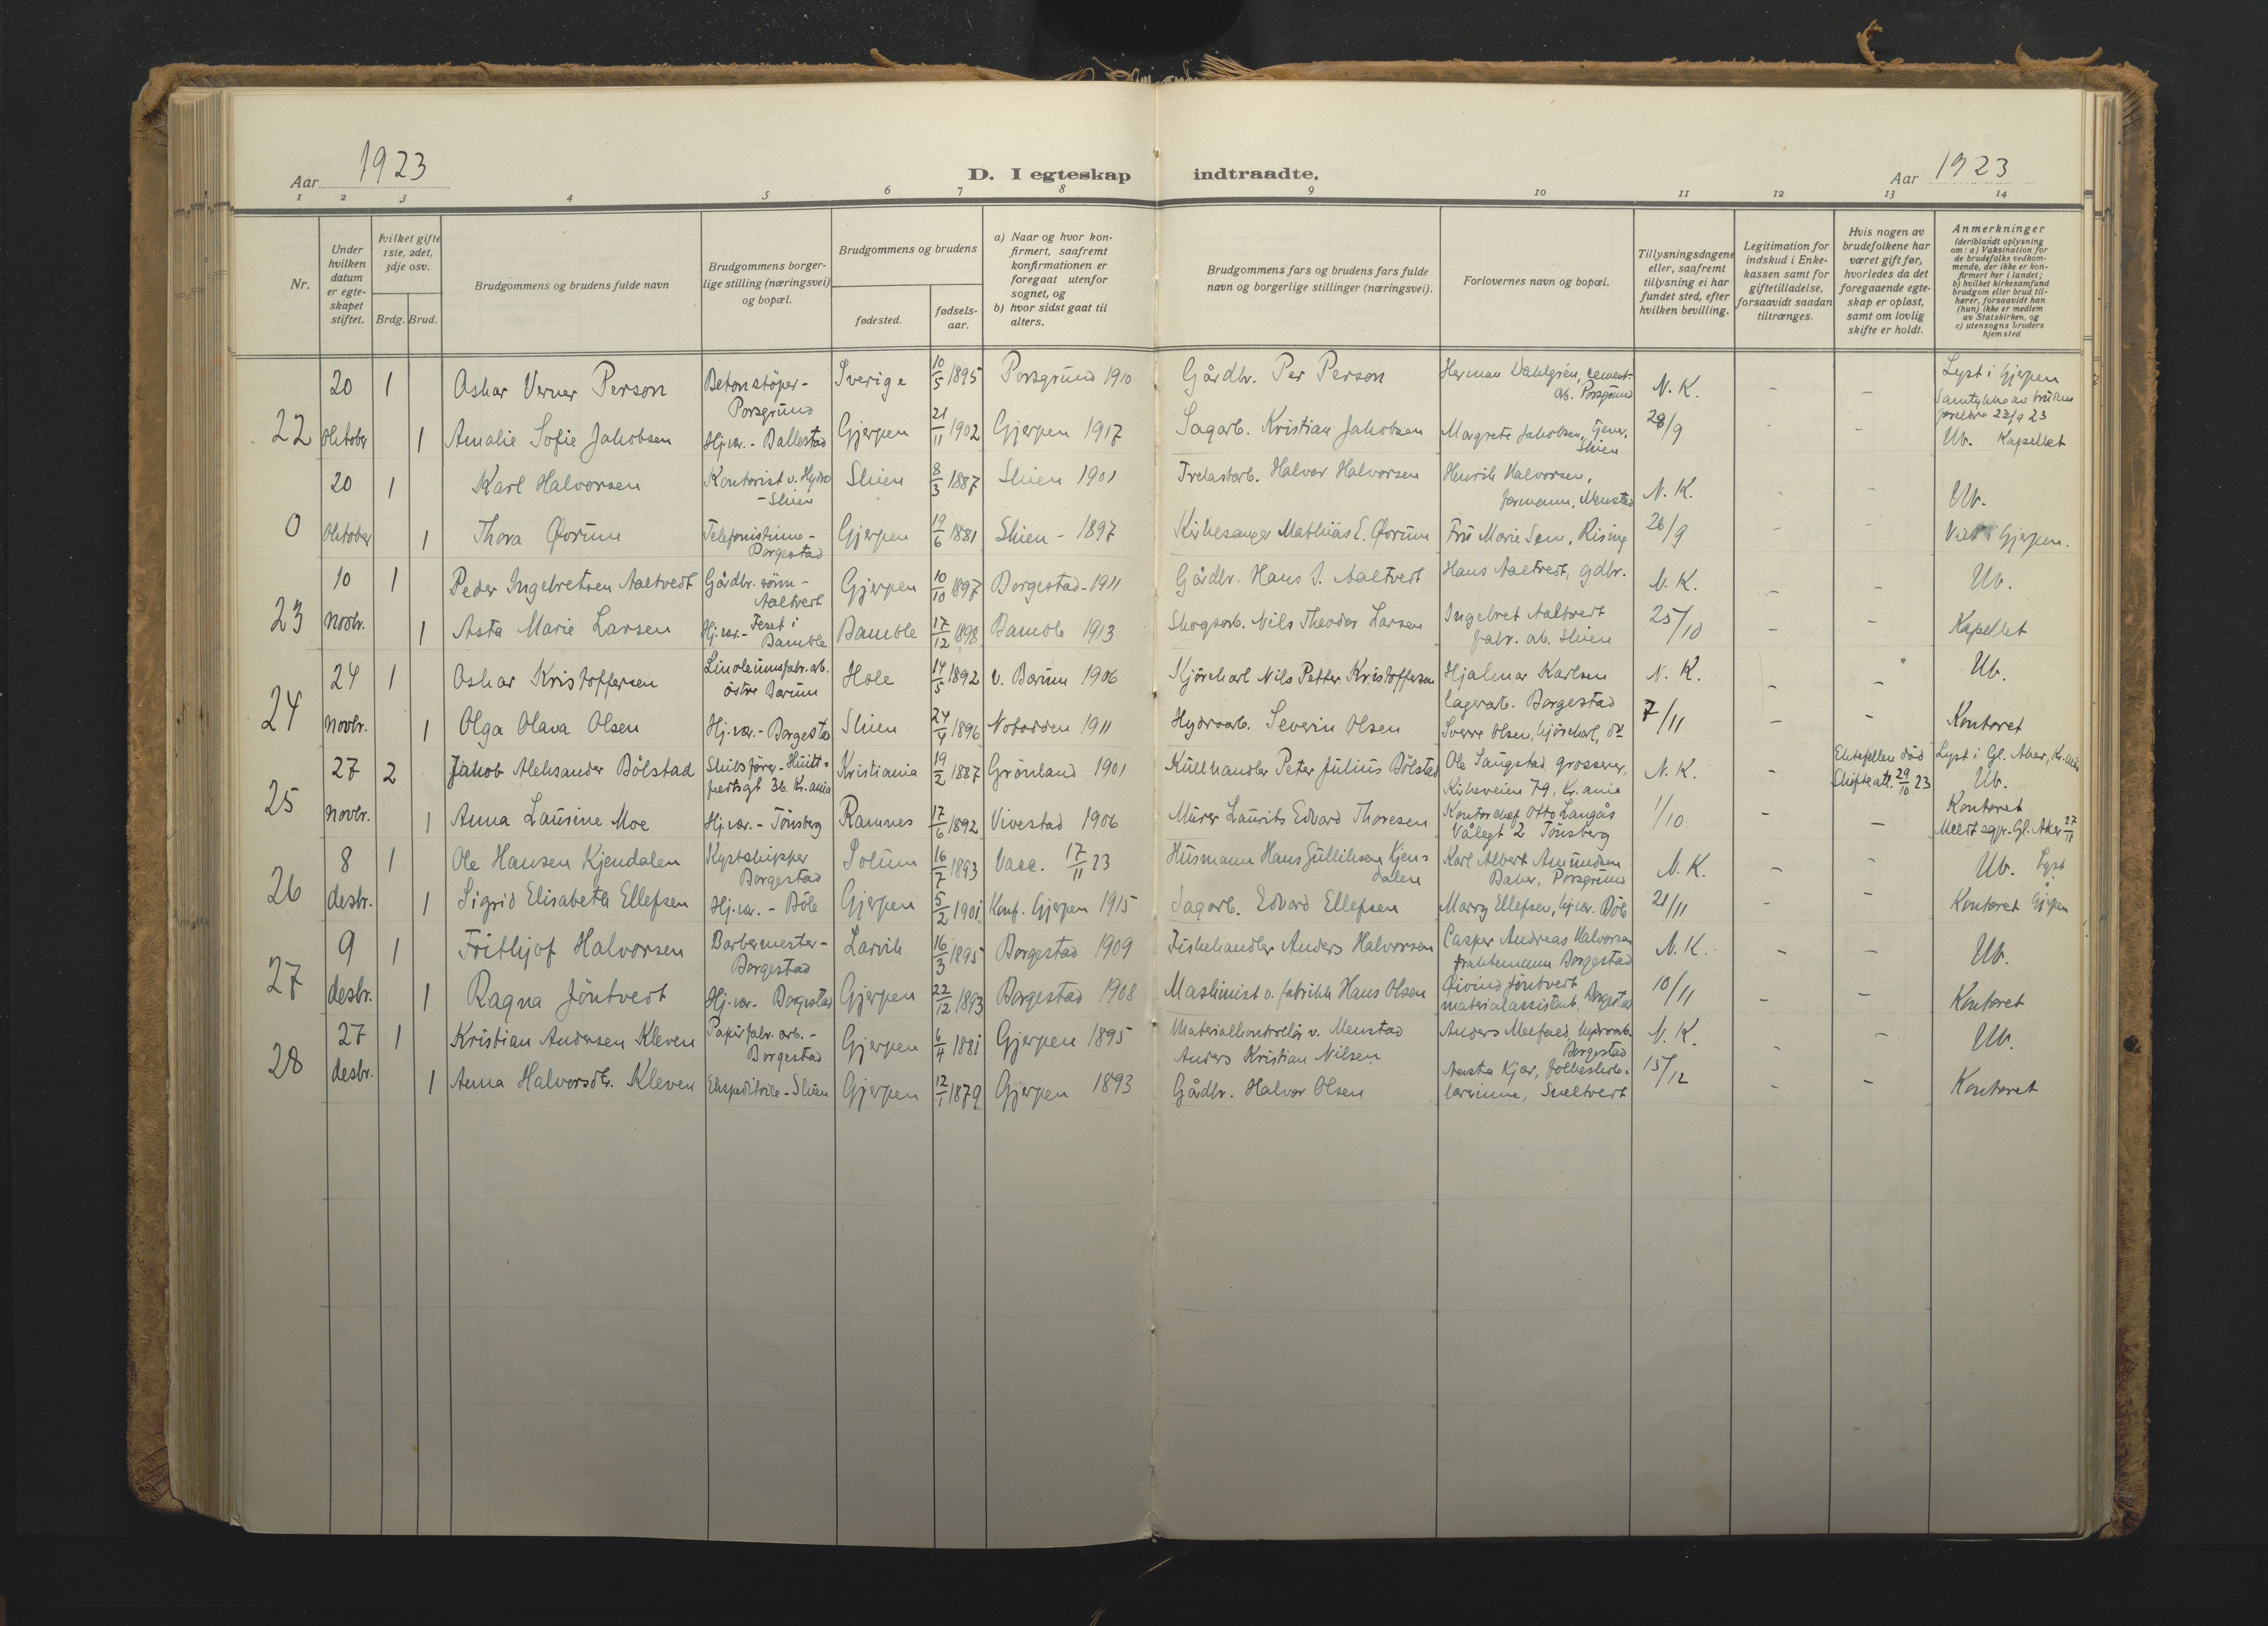 Aar 1923
D. I egteskap indtraadte.
Aar 1923
1 2 3 4 5 6 7 8 9 10 11 12 13 14
Nr.
Under hvilken datum er egteskapet stiftet.
Hvilket gifte 1ste, 2det, 3dje osv.
Brdg. Brud.
Brudgommens og brudens fulde navn
Brudgommens borgerlige stilling (næringsvei) og bopæl.
Brudgommens og brudens
fødested. fødselsaar.
a) Naar og hvor konfirmert, saafremt konfirmationen er foregaat utenfor sognet, og
b) hvor sidst gaat til alters.
Brudgommens fars og brudens fars fulde navn og borgerlige stillinger (næringsvei).
Forlovernes navn og bopæl.
Tillysningsdagene eller, saafremt tillysning ei har fundet sted, efter hvilken bevilling.
Legitimation for indskud i Enkekassen samt for giftetilladelse, forsaavidt saadan tiltrænges.
Hvis nogen av brudefolkene har været gift før, hvorledes da det foregaaende egteskap er opløst, samt om lovlig skifte er holdt.
Anmerkninger (deriblandt oplysning om: a) Vaksination for de brudefolks vedkommende, der ikke er konfirmert her i landet; b) hvilket kirkesamfund brudgom eller brud tilhører, forsaavidt han (hun) ikke er medlem av Statskirken, og c) utensogns bruders hjemsted
22 20 1 Oskar Verner Person Betonstöper - Porsgrund Sverige 10/5 1895 Porsgrund 1910 Gårdbr. Per Person Herman Dahlgren, cementarb. Porsgrund N. K. - - Lyst i Gjerpen
Oktober 1 Amalie Sofie Jakobsen Hj.vær. - Ballestad Gjerpen 21/11 1902 Gjerpen 1917 Sagarb. Kristian Jakobsen Margrete Jakobsen, tjener, Skien 28/9 - - Samtykke av brudens foreldre 22/9 23 Ub. Kapellet
0 20 1 Karl Halvorsen Kontorist v. Hydro - Skien Skien 8/3 1887 Skien 1901 Trelastarb. Halvor Halvorsen Henrik Halvorsen, formann, Menstad N. K. - - Ub.
Oktober 1 Thora Qvorum Telefonistinne - Borgestad Gjerpen 19/6 1881 Skien - 1897 Kirkesanger Mathias E. Qvorum Fru Marie Sem, Rising 26/9 - - Viet i Gjerpen.
23 10 1 Peder Ingebretsen Aaltvedt Gårdbr. sönn - Aaltvedt Gjerpen 10/10 1897 Borgestad - 1911 Gårdbr. Hans I. Aaltvedt Hans Aaltvedt, gdbr. N. K. - - Ub.
novbr. 1 Asta Marie Larsen Hj.vær. - Feset i Bamble Bamble 17/12 1898 Bamble 1913 Skogsarb. Nils Theodor Larsen Ingebret Aaltvedt fabr. arb. Skien 25/10 - - Kapellet
24 24 1 Oskar Kristoffersen Linoleumsfabr. arb. östre Bærum Hole 14/5 1892 v. Bærum 1906 Kjörekarl Nils Petter Kristoffersen Hjalmar Karlsen lagerarb. Borgestad N. K. - - Ub.
novbr. 1 Olga Olava Olsen Hj.vær. - Borgestad Skien 24/4 1896 Notodden 1911 Hydroarb. Severin Olsen Sverre Olsen, kjörekarl, do 7/11 - - Kontoret
25 27 2 Jakob Aleksander Bölstad Skibsförer - Huitfeldtsgt 36. Kr.ania Kristiania 19/2 1887 Grönland 1901 Kullhandler Peter Julius Bölstad Ole Saugstad, grosserer, Kirkeveien 79, Kr.ania N. K. - Ektefellen död Skifteatt. 29/10 23 Lyst i Gl. Aker, Kr.ania Ub.
novbr. 1 Anna Laurine Moe Hj.vær. - Tönsberg Ramnes 17/6 1892 Vivestad 1906 Murer Laurits Edvard Thoresen Kontorchef Otto Langås Vålegt 2 Tönsberg 1/10 - Kontoret Meldt sgpr. Gl. Aker 27/11
26 8 1 Ole Hansen Kjendalen Kystskipper Borgestad Solum 16/7 1893 Vacc. 17/11 23 Husmann Hans Gulliksen Kjendalen Karl Albert Amundsen Baker, Porsgrund N. K. - - Ub. Lyst
desbr. 1 Sigrid Elisabeth Ellefsen Hj.vær. - Böle Gjerpen 5/2 1901 Konf. Gjerpen 1915 Sagarb. Edvard Ellefsen Marry Ellefsen, hj.vær. Böle 21/11 - - Kontoret Gjerpen
27 9 1 Frithjof Halvorsen Barbermester - Borgestad Larvik 16/3 1895 Borgestad 1909 Fiskehandler Anders Halvorsen Casper Andreas Halvorsen fraktemann Borgestad N. K. - - Ub.
desbr. 1 Ragna Jöntvedt Hj.vær. Borgestad Gjerpen 22/12 1893 Borgestad 1908 Maskinist v. fabrikk Hans Olsen Öivind Jöntvedt materialassistent, Borgestad 10/11 - - Kontoret
28 27 1 Kristian Andersen Kleven Papirfabr. arb. - Borgestad Gjerpen 6/4 1881 Gjerpen 1895 Materialkontrollör v. Menstad Anders Kristian Nilsen Anders Melfald hydroarb. Borgestad N. K. - - Ub.
desbr. 1 Anna Halvorsdtr. Kleven Ekspeditrise - Skien Gjerpen 12/1 1879 Gjerpen 1893 Gårdbr. Halvor Olsen Aasta Kjær, folkeskolelærerinne, Sneltvedt 15/12 - - Kontoret